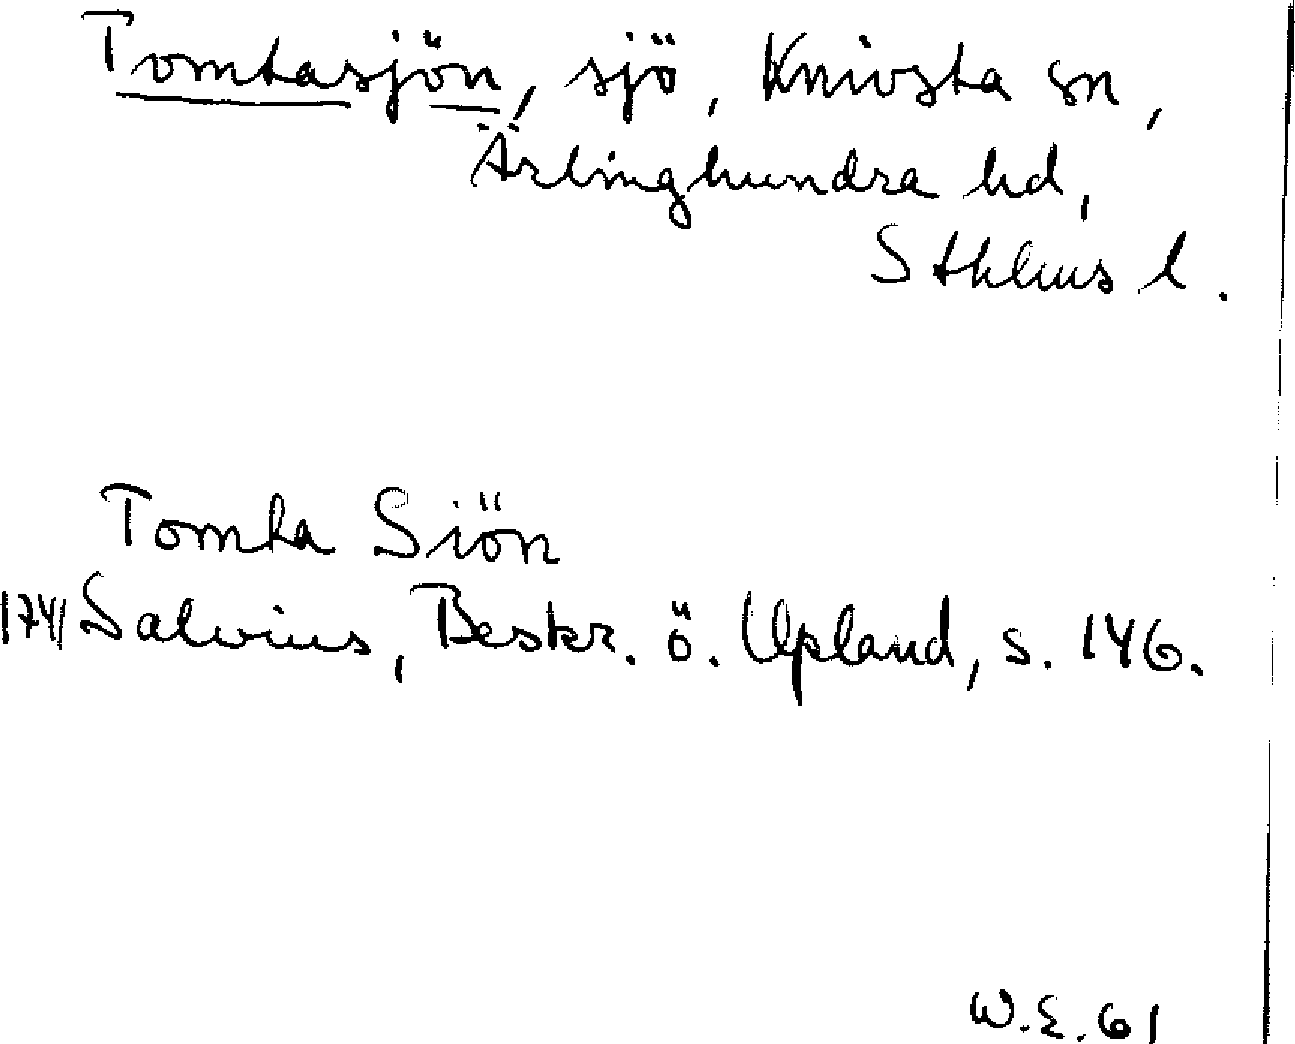 Tomtasjön, sjö, Knivsta sn,
Ärlinghundra hd,
Sthlms l.
Tomta Siön
1741 Salvius, Beskr. ö. Upland, s. 146.
W.E. 61